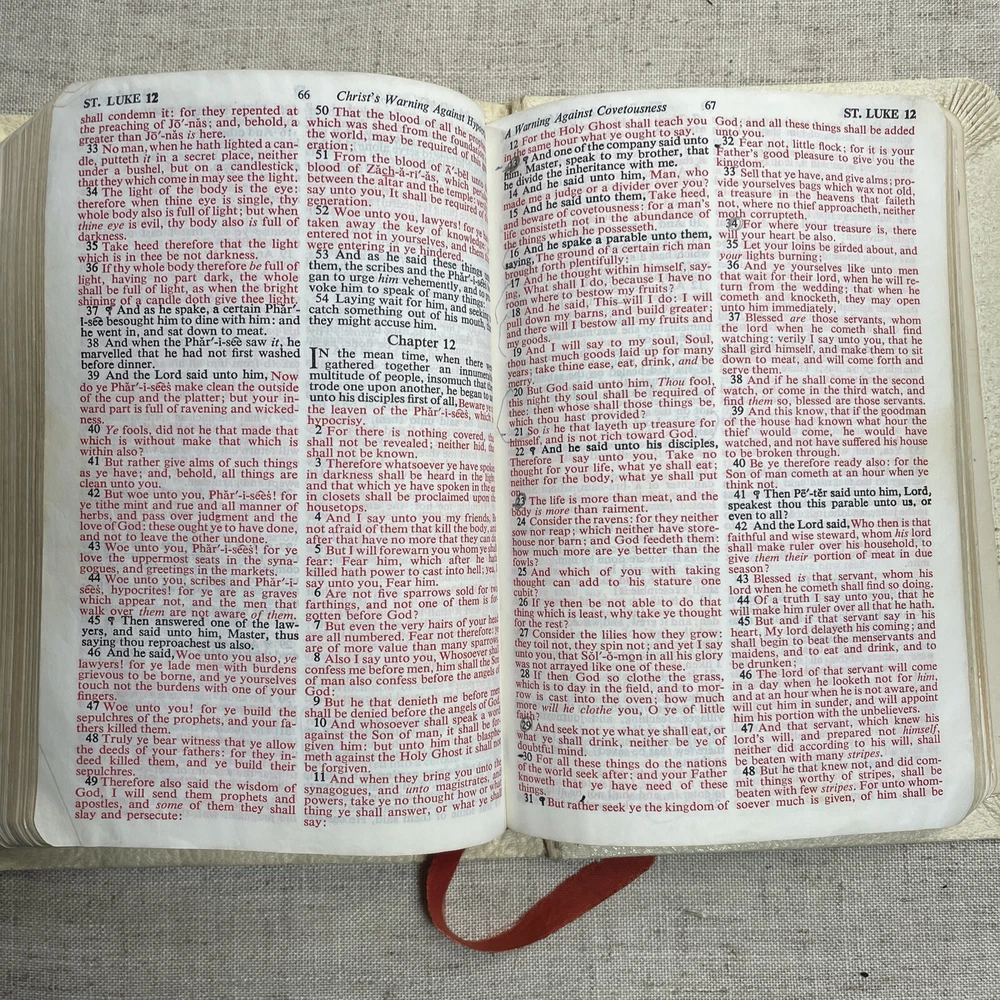 ST. LUKE 12
66
Christ's Warning Against
shall condemn it: for they repented at
the preaching of Jō'-năs; and, behold, a
greater than Jō'-năs is here.
33 No man, when he hath lighted a can-
dle, putteth it in a secret place, neither
under a bushel, but on a candlestick,
that they which come in may see the light.
34 The light of the body is the eye:
therefore when thine eye is single, thy
whole body also is full of light; but when
thine eye is evil, thy body also is full of
darkness.
35 Take heed therefore that the light
which is in thee be not darkness.
36 If thy whole body therefore be full of
light, having no part dark, the whole
shall be full of light, as when the bright
shining of a candle doth give thee light.
37 ¶ And as he spake, a certain Phăr'-
ĭ-sēe besought him to dine with him: and
he went in, and sat down to meat.
38 And when the Phăr'-ĭ-sēe saw it, he
marvelled that he had not first washed
before dinner.
39 And the Lord said unto him, Now
do ye Phăr'-ĭ-sēeṡ make clean the outside
of the cup and the platter; but your in-
ward part is full of ravening and wicked-
ness.
40 Ye fools, did not he that made that
which is without make that which is
within also?
41 But rather give alms of such things
as ye have; and, behold, all things are
clean unto you.
42 But woe unto you, Phăr'-ĭ-sēeṡ! for
ye tithe mint and rue and all manner of
herbs, and pass over judgment and the
love of God: these ought ye to have done,
and not to leave the other undone.
43 Woe unto you, Phăr'-ĭ-sēeṡ! for ye
love the uppermost seats in the syna-
gogues, and greetings in the markets.
44 Woe unto you, scribes and Phăr'-ĭ-
sēeṡ, hypocrites! for ye are as graves
which appear not, and the men that
walk over them are not aware of them.
45 ¶ Then answered one of the law-
yers, and said unto him, Master, thus
saying thou reproachest us also.
46 And he said, Woe unto you also, ye
lawyers! for ye lade men with burdens
grievous to be borne, and ye yourselves
touch not the burdens with one of your
fingers.
47 Woe unto you! for ye build the
sepulchres of the prophets, and your fa-
thers killed them.
48 Truly ye bear witness that ye allow
the deeds of your fathers: for they in-
deed killed them, and ye build their
sepulchres.
49 Therefore also said the wisdom of
God, I will send them prophets and
apostles, and some of them they shall
slay and persecute:
50 That the blood of all the
which was shed from the foundation
the world, may be required of this
eration;
51 From the blood of Ā'-bĕl unto
blood of Zăch-ȧ-rī'-ȧs, which
between the altar and the temple:
say unto you, It shall be required of
generation.
52 Woe unto you, lawyers! for ye
taken away the key of knowledge:
entered not in yourselves, and
were entering in ye hindered.
53 And as he said these things
them, the scribes and the Phăr'-ĭ-sēeṡ
gan to urge him vehemently, and
voke him to speak of many things:
54 Laying wait for him, and seeking
catch something out of his mouth,
they might accuse him.
Chapter 12
IN the mean time, when there
gathered together an
multitude of people, insomuch that
trode one upon another, he began to
unto his disciples first of all, Beware
the leaven of the Phăr'-ĭ-sēeṡ, which
hypocrisy.
2 For there is nothing covered,
shall not be revealed; neither hid,
shall not be known.
3 Therefore whatsoever ye have spoken
in darkness shall be heard in the light;
and that which ye have spoken in the
in closets shall be proclaimed upon the
housetops.
4 And I say unto you my friends,
afraid of them that kill the body, and
after that have no more that they can do.
5 But I will forewarn you whom ye shall
fear: Fear him, which after he hath
killed hath power to cast into hell; yea,
say unto you, Fear him.
6 Are not five sparrows sold for two
farthings, and not one of them is for-
gotten before God?
7 But even the very hairs of your head
are all numbered. Fear not therefore: ye
are of more value than many sparrows.
8 Also I say unto you, Whosoever shall
confess me before men, him shall the Son
of man also confess before the angels of
God:
9 But he that denieth me before men
shall be denied before the angels of God.
10 And whosoever shall speak a word
against the Son of man, it shall be for-
given him: but unto him that blasphe-
meth against the Holy Ghost it shall not
be forgiven.
11 And when they bring you into the
synagogues, and unto magistrates, and
powers, take ye no thought how or what
thing ye shall answer, or what ye shall
say:
A Warning Against Covetousness
67
ST. LUKE 12
12 For the Holy Ghost shall teach you
in the same hour what ye ought to say.
13 ¶ And one of the company said unto
him, Master, speak to my brother, that
he divide the inheritance with me.
14 And he said unto him, Man, who
made me a judge or a divider over you?
15 And he said unto them, Take heed,
and beware of covetousness: for a man's
life consisteth not in the abundance of
the things which he possesseth.
16 And he spake a parable unto them,
saying, The ground of a certain rich man
brought forth plentifully:
17 And he thought within himself, say-
ing, What shall I do, because I have no
room where to bestow my fruits?
18 And he said, This will I do: I will
pull down my barns, and build greater;
and there will I bestow all my fruits and
my goods.
19 And I will say to my soul, Soul,
thou hast much goods laid up for many
years; take thine ease, eat, drink, and be
merry.
20 But God said unto him, Thou fool,
this night thy soul shall be required of
thee: then whose shall those things be,
which thou hast provided?
21 So is he that layeth up treasure for
himself, and is not rich toward God.
22 ¶ And he said unto his disciples,
Therefore I say unto you, Take no
thought for your life, what ye shall eat;
neither for the body, what ye shall put
on.
23 The life is more than meat, and the
body is more than raiment.
24 Consider the ravens: for they neither
sow nor reap; which neither have store-
house nor barn; and God feedeth them:
how much more are ye better than the
fowls?
25 And which of you with taking
thought can add to his stature one
cubit?
26 If ye then be not able to do that
thing which is least, why take ye thought
for the rest?
27 Consider the lilies how they grow:
they toil not, they spin not; and yet I say
unto you, that Sŏl'-ȯ-mȯn in all his glory
was not arrayed like one of these.
28 If then God so clothe the grass,
which is to day in the field, and to mor-
row is cast into the oven; how much
more will he clothe you, O ye of little
faith?
29 And seek not ye what ye shall eat, or
what ye shall drink, neither be ye of
doubtful mind.
30 For all these things do the nations
of the world seek after: and your Father
knoweth that ye have need of these
things.
31 ¶ But rather seek ye the kingdom of
God; and all these things shall be added
unto you.
32 Fear not, little flock; for it is your
Father's good pleasure to give you the
kingdom.
33 Sell that ye have, and give alms; pro-
vide yourselves bags which wax not old,
a treasure in the heavens that faileth
not, where no thief approacheth, neither
moth corrupteth.
34 For where your treasure is, there
will your heart be also.
35 Let your loins be girded about, and
your lights burning;
36 And ye yourselves like unto men
that wait for their lord, when he will re-
turn from the wedding; that when he
cometh and knocketh, they may open
unto him immediately.
37 Blessed are those servants, whom
the lord when he cometh shall find
watching: verily I say unto you, that he
shall gird himself, and make them to sit
down to meat, and will come forth and
serve them.
38 And if he shall come in the second
watch, or come in the third watch, and
find them so, blessed are those servants.
39 And this know, that if the goodman
of the house had known what hour the
thief would come, he would have
watched, and not have suffered his house
to be broken through.
40 Be ye therefore ready also: for the
Son of man cometh at an hour when ye
think not.
41 ¶ Then Pē'-tĕr said unto him, Lord,
speakest thou this parable unto us, or
even to all?
42 And the Lord said, Who then is that
faithful and wise steward, whom his lord
shall make ruler over his household, to
give them their portion of meat in due
season?
43 Blessed is that servant, whom his
lord when he cometh shall find so doing.
44 Of a truth I say unto you, that he
will make him ruler over all that he hath.
45 But and if that servant say in his
heart, My lord delayeth his coming; and
shall begin to beat the menservants and
maidens, and to eat and drink, and to
be drunken;
46 The lord of that servant will come
in a day when he looketh not for him,
and at an hour when he is not aware, and
will cut him in sunder, and will appoint
him his portion with the unbelievers.
47 And that servant, which knew his
lord's will, and prepared not himself,
neither did according to his will, shall
be beaten with many stripes.
48 But he that knew not, and did com-
mit things worthy of stripes, shall be
beaten with few stripes. For unto whom-
soever much is given, of him shall be